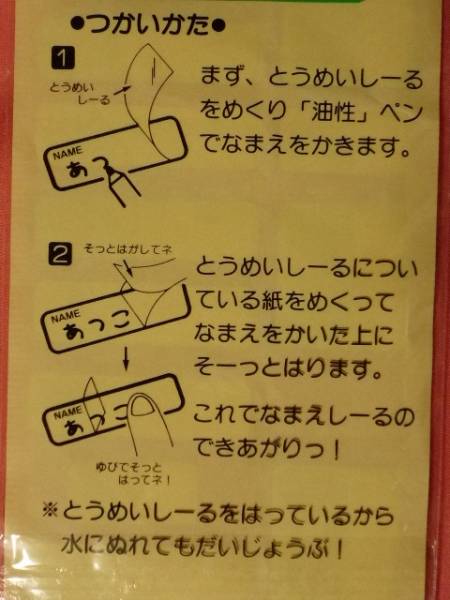 ●つかいかた●
1
とうめい
しーる
まず、とうめいしーる
をめくり「油性」ペン
でなまえをかきます。
NAME
あつ
2
そっとはがしてネ
とうめいしーるについ
ている紙をめくって
なまえをかいた上に
そーっとはります。
NAME
あつこ
これでなまえしーるの
できあがりっ！
NAME
あつこ
ゆびでそっと
はってネ！
※とうめいしーるをはっているから
水にぬれてもだいじょうぶ！